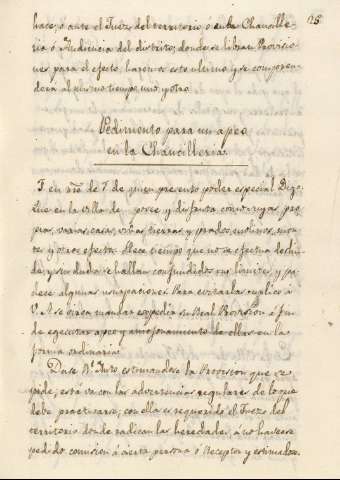 25
hace, ó ante el Juez del territorio ó en la Chancille-
ria ó Audiencia del distrito, donde se libran Provisio-
nes para el efecto, haremos esto ultimo y se compren-
derá al mismo tiempo uno y otro.
Pedimento para un apeo
en la Chancilleria.
F. en nre de T. de quien presento poder especial Digo
Que en la villa de posee y disfruta como suyas pro-
pias, varias casas, viñas, tierras y prados, molinos, mon-
tes y otros efectos. Hace tiempo que no se efectua deslin-
de, y sin duda se hallan confundidos sus limites, y pa-
dece algunas usurpaciones. Para evitarlas suplico á
V. A. se sirva mandar expedir su Real Provision á fin
de egecutar apeo y amojonamiento de ellas en la
forma ordinaria.
Dase Rl. Auto estimandose la Provision que se
pide; esta va con las advertencias regulares de lo que
debe practicarse; con ella es requerido el Juez del
territorio donde radican las heredades á no haverse
pedido comision á cierta persona ó Receptor y estimadose.